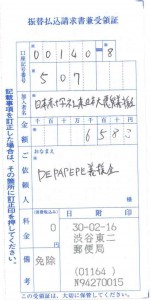 振替払込請求書兼受領証
口座記号番号
00140 8
507
加入者名
日本赤十字社 東日本大震災義援金
金額
千 百 十 万 千 百 十 円
6582
ご依頼人
おなまえ
DEPAPEPE義援金
料金
(消費税込み)
0
円
備考
免除
日附印
30-02-16
渋谷東二
郵便局
(01164)
N94270015
記載事項を訂正した場合は、その箇所に訂正印を押してください。
この受領証は、大切に保管してください。